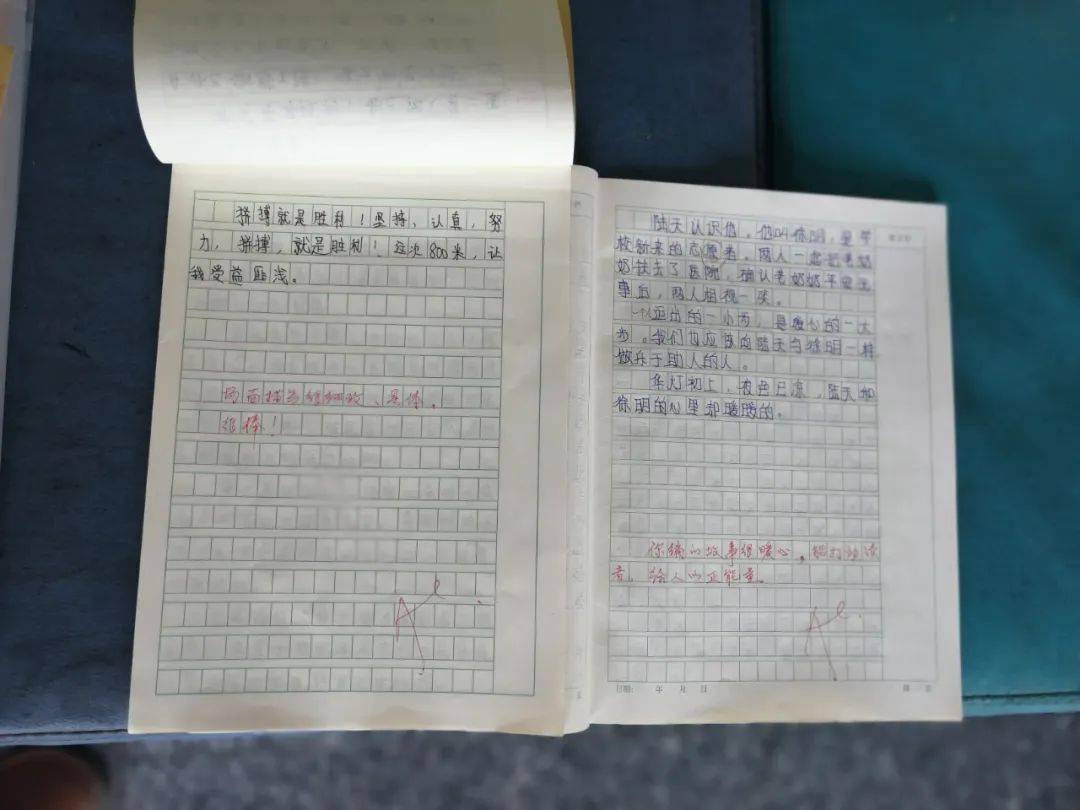 拼搏就是胜利！坚持，认真，努
力，拼搏，就是胜利！这次800米，让
我受益匪浅。
场面描写很细致、具体。
很棒！
陆天认识他。他叫徐明，是学
校新来的志愿者。两人一起把老奶
奶扶去了医院，确认老奶奶平安无
事后，两人相视一笑。
迈出的一小步，是暖心的一大
步。我们也应该向陆天与徐明一样
做乐于助人的人。
华灯初上，夜色已凉，陆天和
徐明的心里却暖暖的。
你编的故事很暖心，能打动读
者，给人以正能量。
日期： 年 月 日